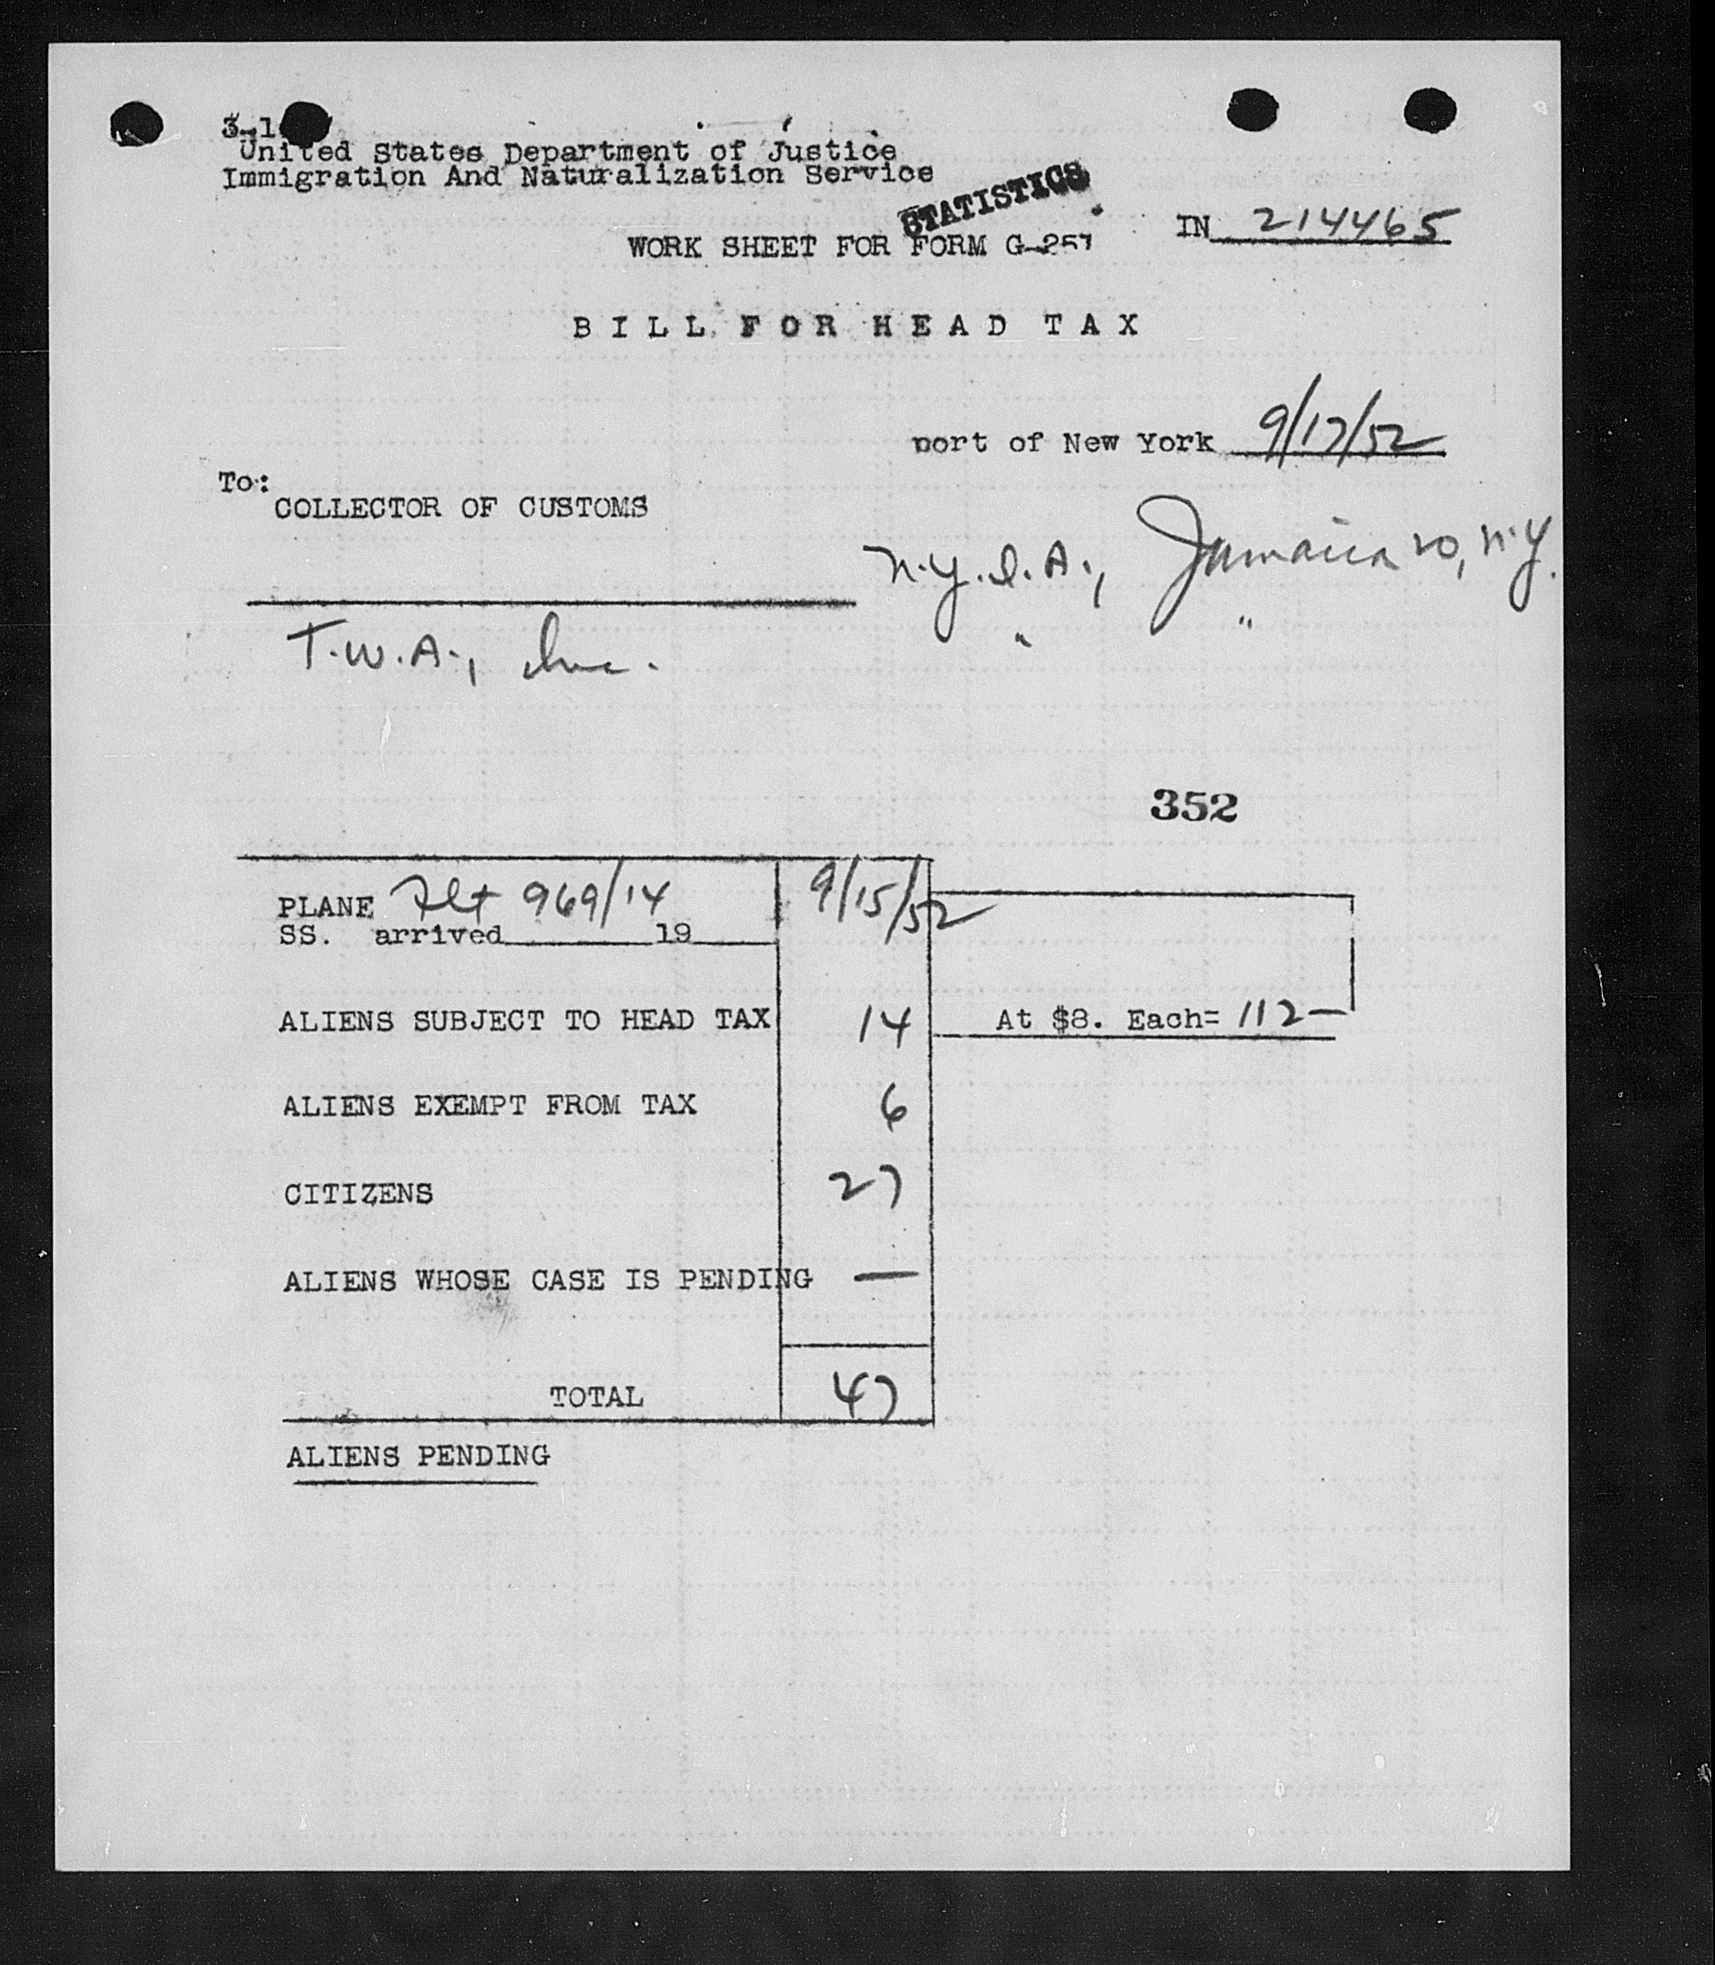 3-1
United States Department of Justice
Immigration And Naturalization Service
STATISTICS
IN 214465
WORK SHEET FOR FORM G-257
BILL FOR HEAD TAX
port of New York 9/17/52
To:
COLLECTOR OF CUSTOMS
N.Y.I.A., Jamaica 20, N.Y.
" "
T.W.A., Inc.
352
PLANE Flt 969/14 9/15/52
SS. arrived 19
ALIENS SUBJECT TO HEAD TAX 14 At $8. Each= 112—
ALIENS EXEMPT FROM TAX 6
CITIZENS 27
ALIENS WHOSE CASE IS PENDING —
TOTAL 47
ALIENS PENDING